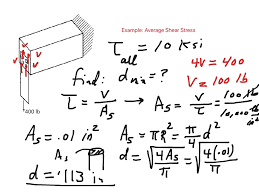 Example: Average Shear Stress
τ_all = 10 ksi
4V = 400
V = 100 lb
find: d_min = ?
τ = V / A_s → A_s = V / τ = 100 lb / 10,000 lb/in²
A_s = .01 in²
A_s = πR² = π/4 d²
A_s
d = √(4A_s / π) = √(4(.01) / π)
d = .113 in
400 lb
V
V